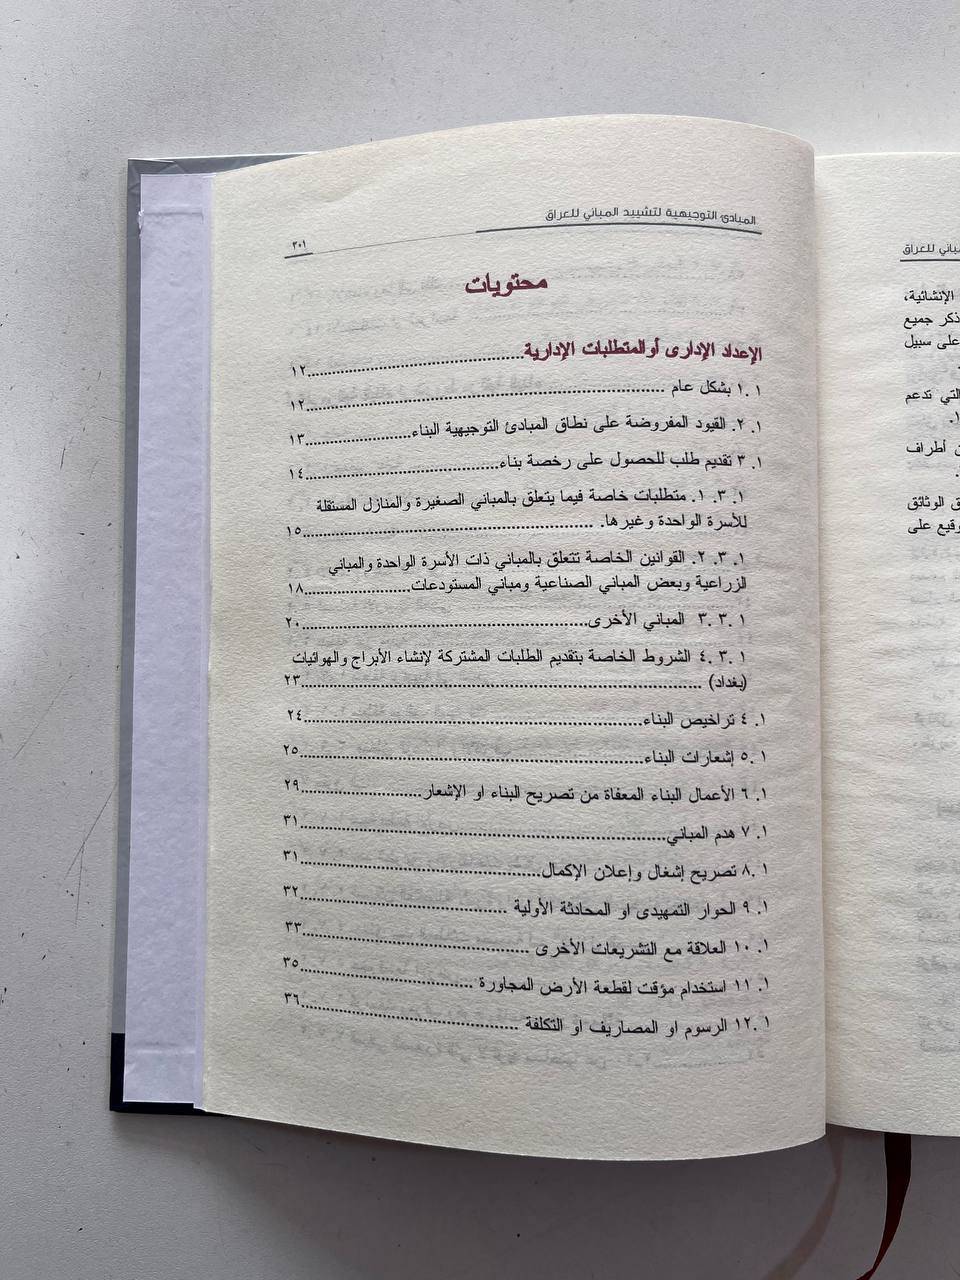 المبادئ التوجيهية لتشييد المباني للعراق
٣٠١
محتويات
الإعداد الإدارى أوالمتطلبات الإدارية......................................١٢
١ .١ بشكل عام ......................................١٢
١. ٢. القيود المفروضة على نطاق المبادئ التوجيهية البناء......................١٣
١. ٣ تقديم طلب للحصول على رخصة بناء......................١٤
١. ٣. ١. متطلبات خاصة فيما يتعلق بالمباني الصغيرة والمنازل المستقلة
للأسرة الواحدة وغيرها. ......................................١٥
١. ٣. ٢. القوانين الخاصة تتعلق بالمباني ذات الأسرة الواحدة والمباني
الزراعية وبعض المباني الصناعية ومباني المستودعات......................١٨
١ .٣ .٣ المباني الأخرى......................................٢٠
١ .٣ .٤ الشروط الخاصة بتقديم الطلبات المشتركة لإنشاء الأبراج والهوائيات
(بغداد) ......................................٢٣
١. ٤ تراخيص البناء......................................٢٤
١ .٥ إشعارات البناء......................................٢٥
١. ٦ الأعمال البناء المعفاة من تصريح البناء او الإشعار......................٢٩
١. ٧ هدم المباني......................................٣١
١ .٨ تصريح إشغال وإعلان الإكمال......................٣١
١. ٩ الحوار التمهيدى او المحادثة الأولية ......................٣٢
١. ١٠ العلاقة مع التشريعات الأخرى ......................٣٣
١. ١١ استخدام مؤقت لقطعة الأرض المجاورة ......................٣٥
١ .١٢ الرسوم او المصاريف او التكلفة ......................٣٦
باني للعراق
الإنشائية،
ذكر جميع
على سبيل
لتي تدعم
ن أطراف
ق الوثائق
وقيع على